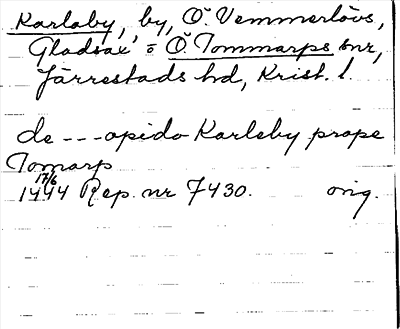 Karlaby, by, Ö. Vemmerlövs,
Gladsax o Ö. Tommarps snr,
Järrestads hd, Krist. l.
de --- opido Karleby prope
Tomarp
17/6
1444 Rep. nr 7430. orig.